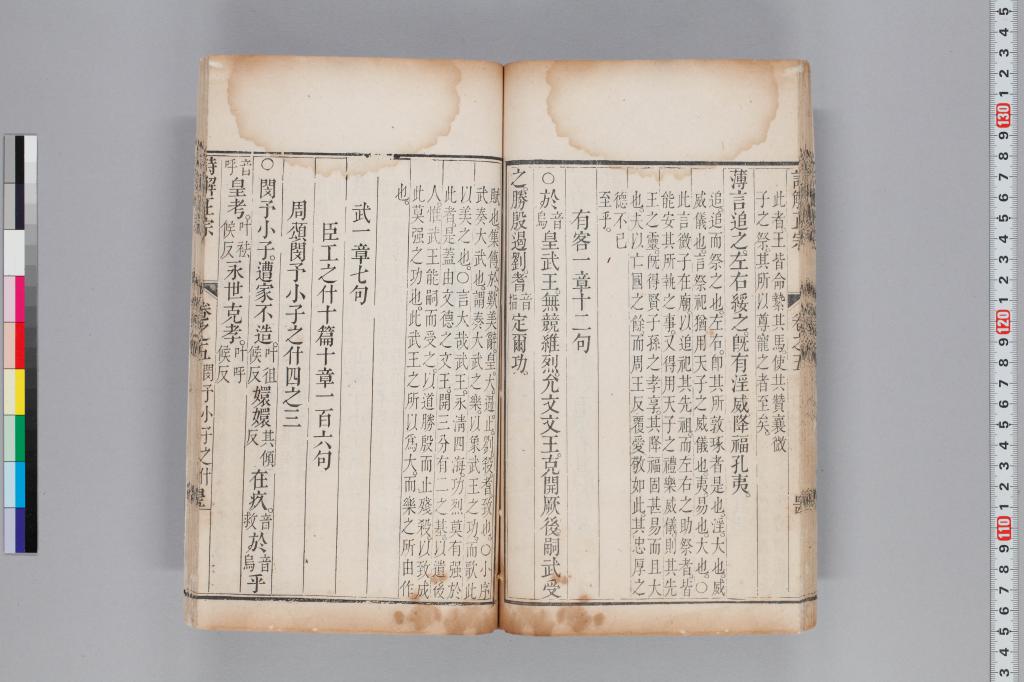 此者王皆命縶其馬使共贊襄微
子之祭其所以尊寵之者至矣。
薄言追之。左右綏之。旣有淫威降福孔夷。
追追而祭之也。左右。卽其所敦琢者是也。淫。大也威
威儀也。言祭祀猶用天子之威儀也夷易也大也。○
此言微子在廟以追祀其先祖而左右之助祭者皆
能安其所執之事又得用天子之禮樂威儀則其先
王之靈旣得賢子孫之孝享其降福固甚易而且大
也夫以亡國之餘而周王反覆愛敬如此其忠厚之
德不已
至乎。
有客一章十二句
○於音烏皇武王。無競維烈。允文文王。克開厥後。嗣武受
之。勝殷遏劉。耆音指定爾功。
賦也集傳於歎美辭皇大。遏止。劉殺耆致也。○小序
武奏大武也。謂奏大武之樂以象武王之功而歌此
以美之也。○言大哉武王。永淸四海功烈莫有强於
此者。是蓋由文德之文王。開三分有二之基以遺後
人惟武王能嗣而受之以道勝殷而止殘殺以致成
此莫强之功也此武王之所以爲大。而樂之所由作
也。
武一章七句
臣工之什十篇十章一百六句
周頌閔予小子之什四之三
○閔予小子。遭家不造叶徂候反嬛嬛其傾反在疚。音救於音烏乎
音呼皇考。叶祛候反永世克孝。叶呼候反
詩解正宗
卷之五
閔予小子之什
詩解正宗
卷之五